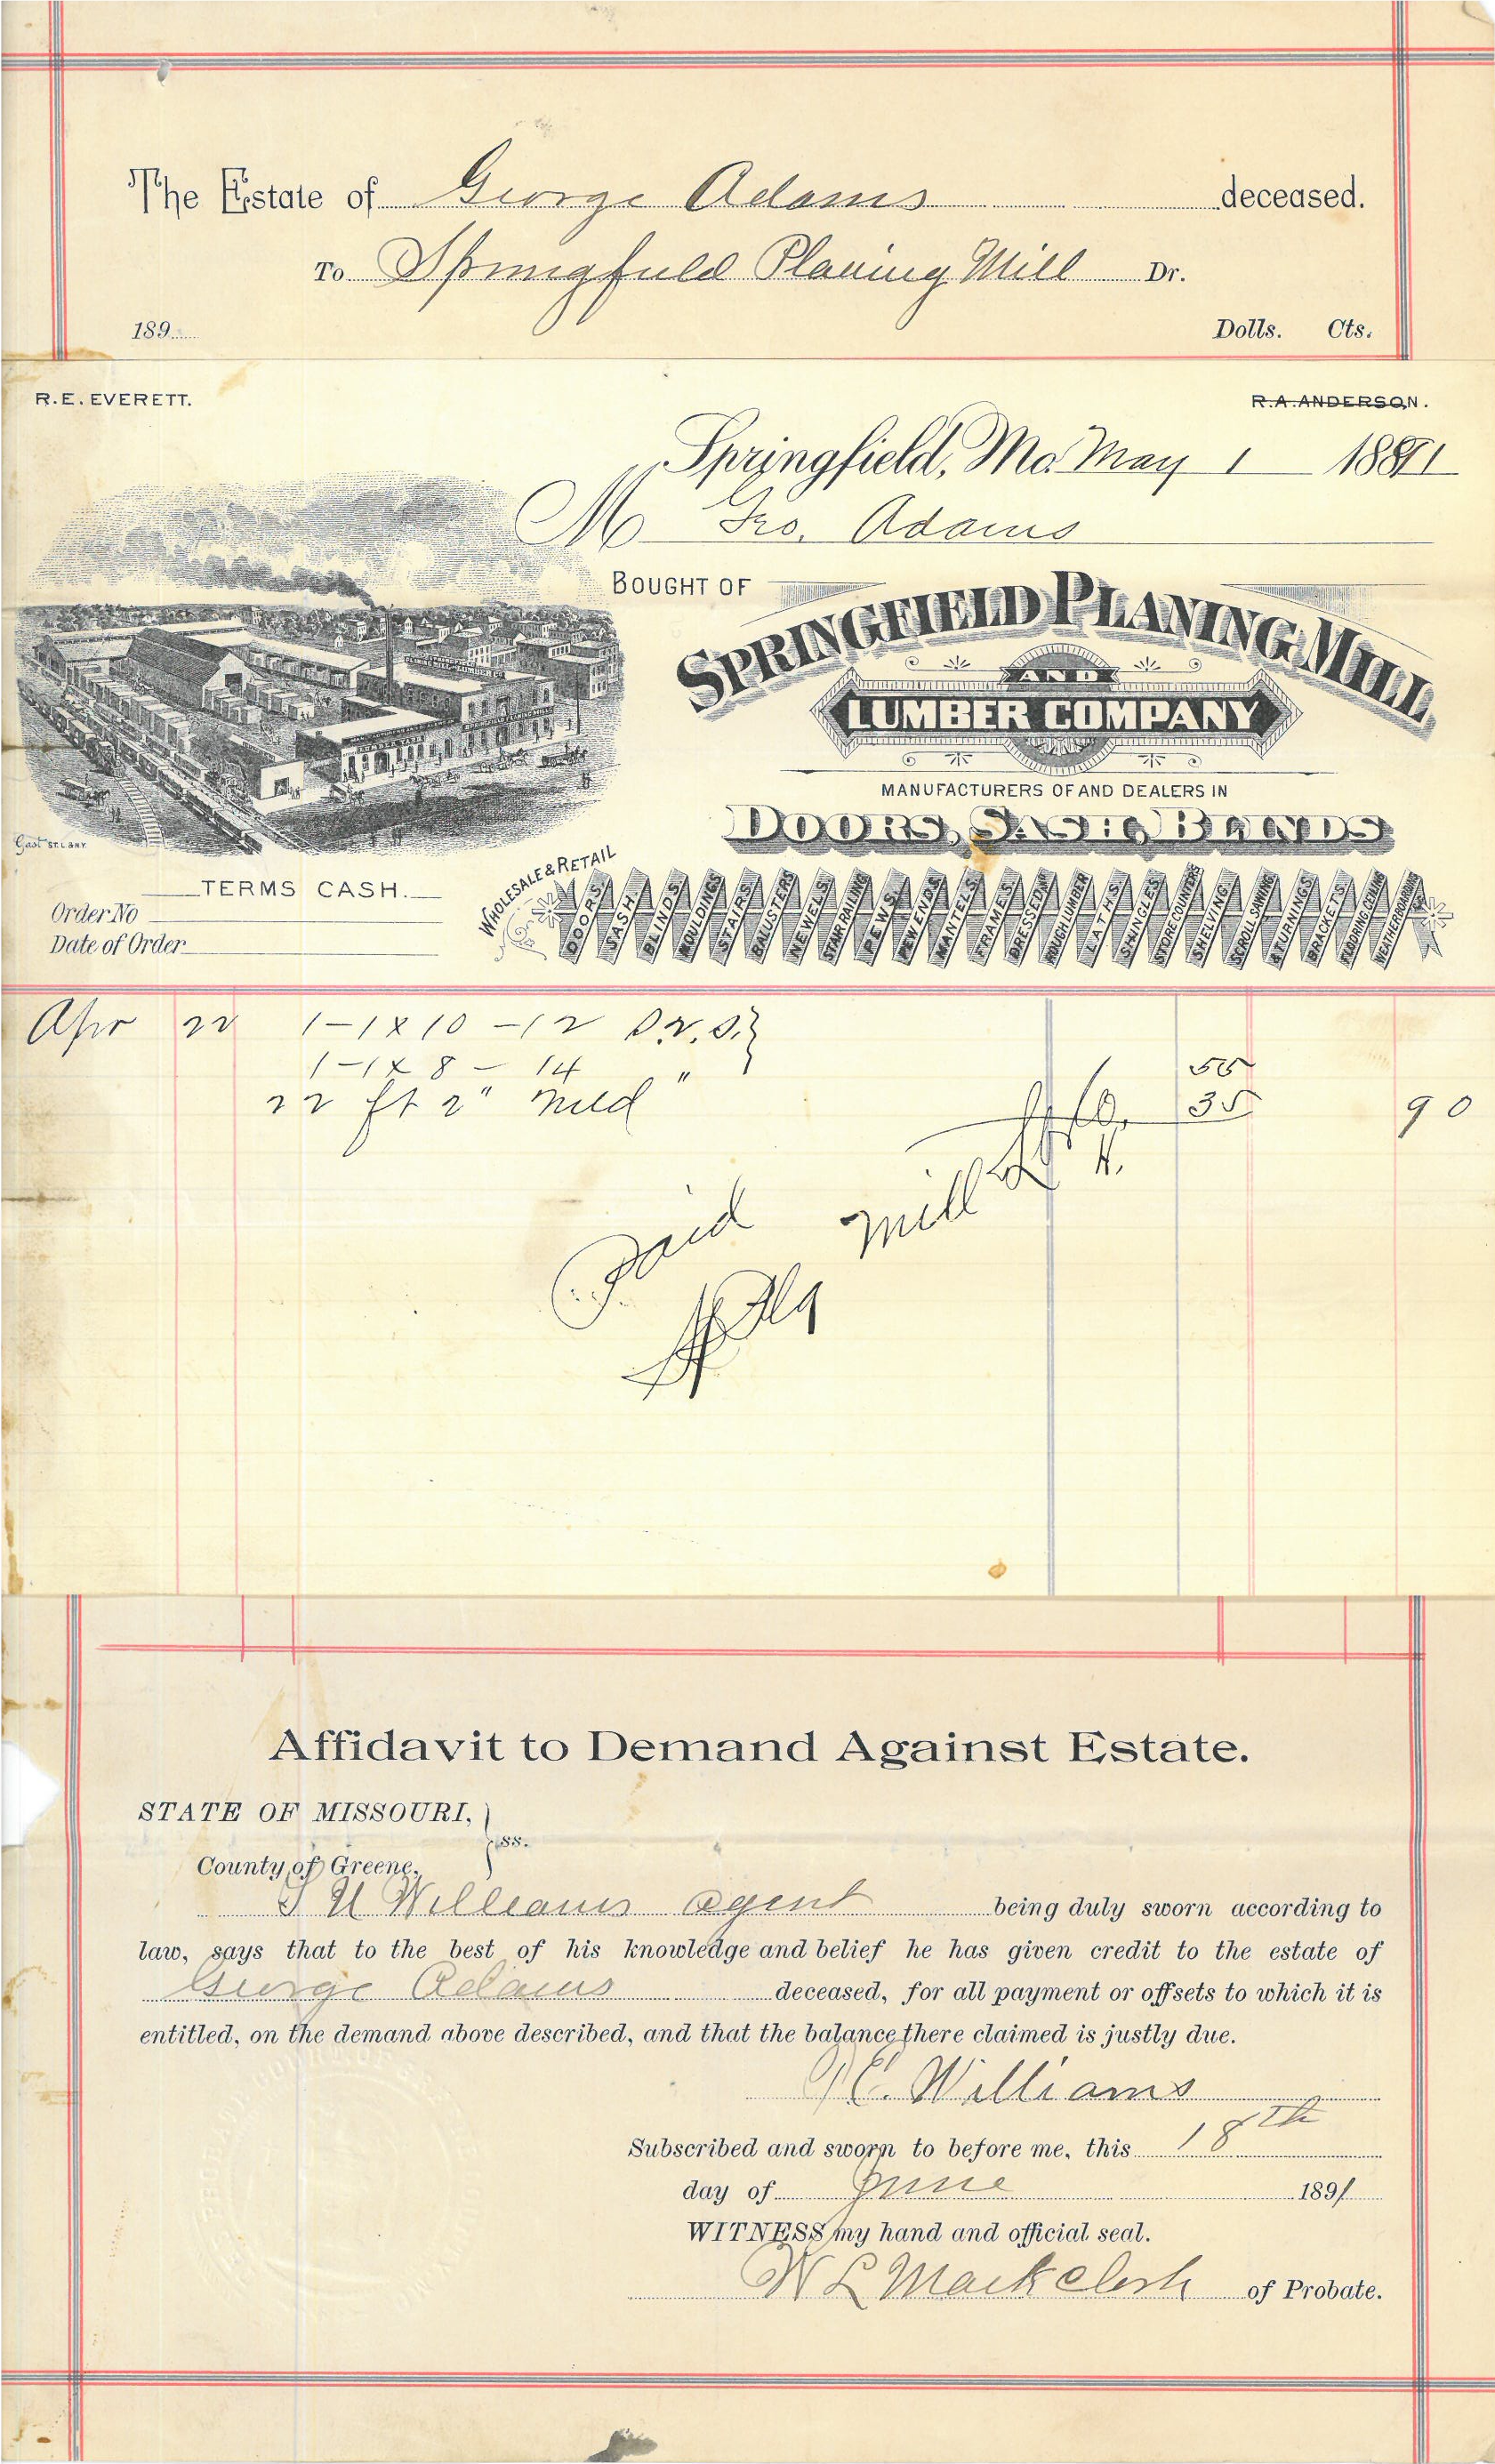 The Estate of George Adams deceased.
To Springfield Planing Mill Dr.
189 Dolls. Cts.
R.E. EVERETT. R.A. ANDERSON.
Springfield, Mo. May 1 1891
M Geo. Adams
BOUGHT OF
SPRINGFIELD PLANING MILL
AND
LUMBER COMPANY
MANUFACTURERS OF AND DEALERS IN
DOORS, SASH, BLINDS
Gast ST. L. & N.Y.
WHOLESALE & RETAIL
DOORS. SASH. BLINDS. MOULDINGS STAIRS. BALUSTERS NEWELS. STAIR RAILING PEWS. PEW ENDS. MANTELS. FRAMES. DRESSED AND ROUGH LUMBER LATHS. SHINGLES STORE COUNTERS SHELVING. SCROLL SAWING & TURNINGS. BRACKETS. FLOORING, CEILING WEATHERBOARDING &C.
TERMS CASH.
Order No
Date of Order
Apr 22 1-1 x 10 - 12 D.2.S. }
1-1 x 8 - 14 " 55
22 ft 2" Mld 35 90
Paid
Mill
Affidavit to Demand Against Estate.
STATE OF MISSOURI, }
ss.
County of Greene.
Williams agent being duly sworn according to
law, says that to the best of his knowledge and belief he has given credit to the estate of
George Adams deceased, for all payment or offsets to which it is
entitled, on the demand above described, and that the balance there claimed is justly due.
Williams
Subscribed and sworn to before me, this 18th
day of June 1891
WITNESS my hand and official seal.
W L Mack clerk of Probate.